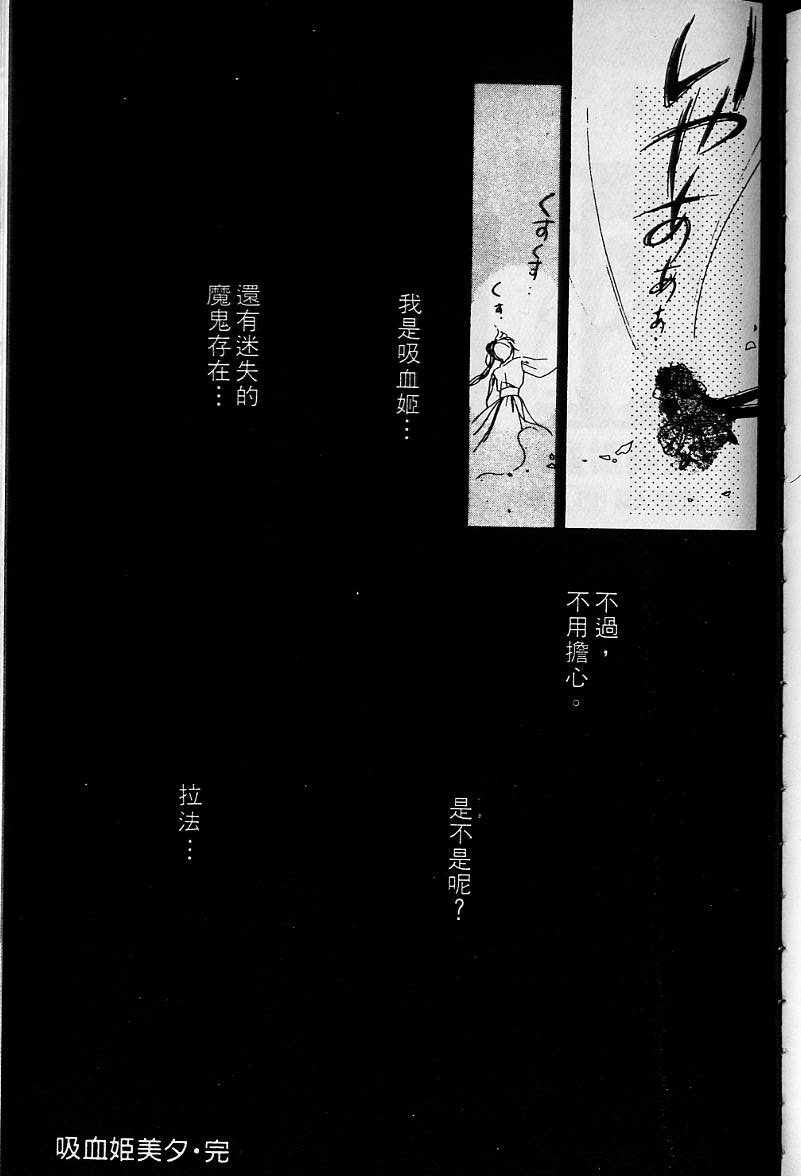 いやあああ
くすくす…
くす…
不過，
不用擔心。
我是吸血姬…
是不是呢？
還有迷失的
魔鬼存在…
拉法…
吸血姬美夕·完